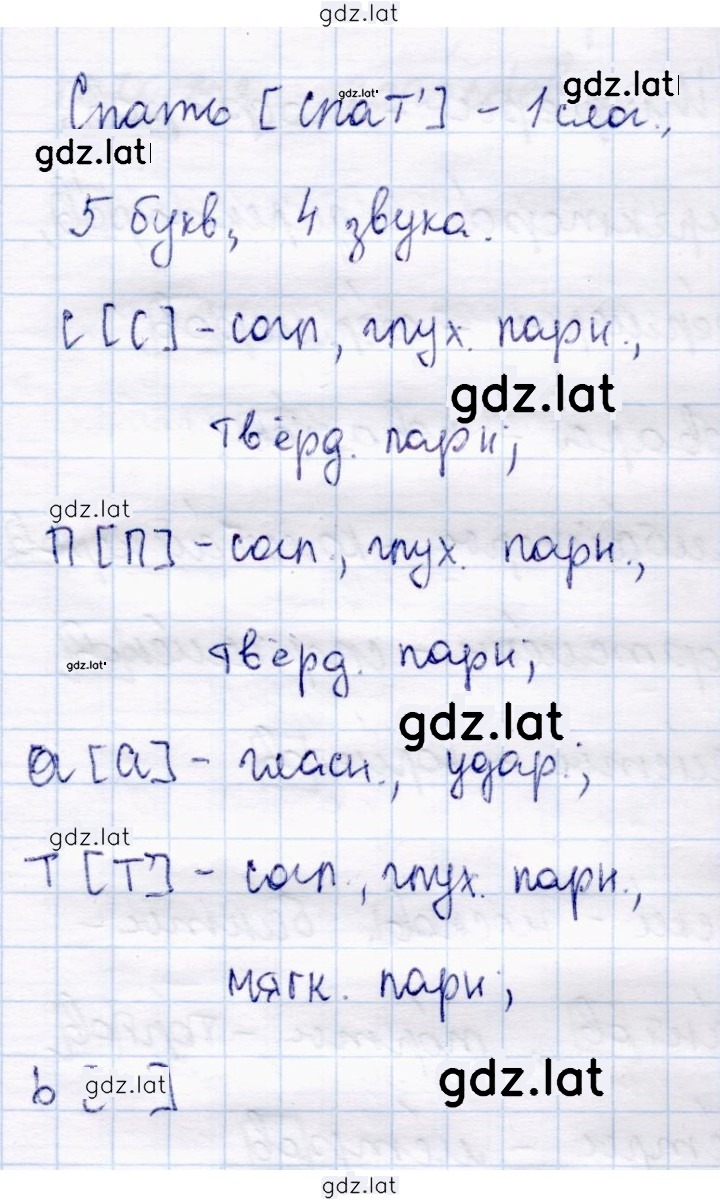 gdz.lat
Спать [спат'] - 1 слог.,
gdz.lat
gdz.lat
gdz.lat
5 букв, 4 звука.
с [с] - согл., глух. парн.,
gdz.lat
твёрд. парн;
gdz.lat
п [п] - согл., глух. парн.,
твёрд. парн;
gdz.lat
gdz.lat
а [а] - гласн., удар.;
gdz.lat
т [т'] - согл., глух. парн.,
мягк. парн;
ь [ ]
gdz.lat
gdz.lat
gdz.lat